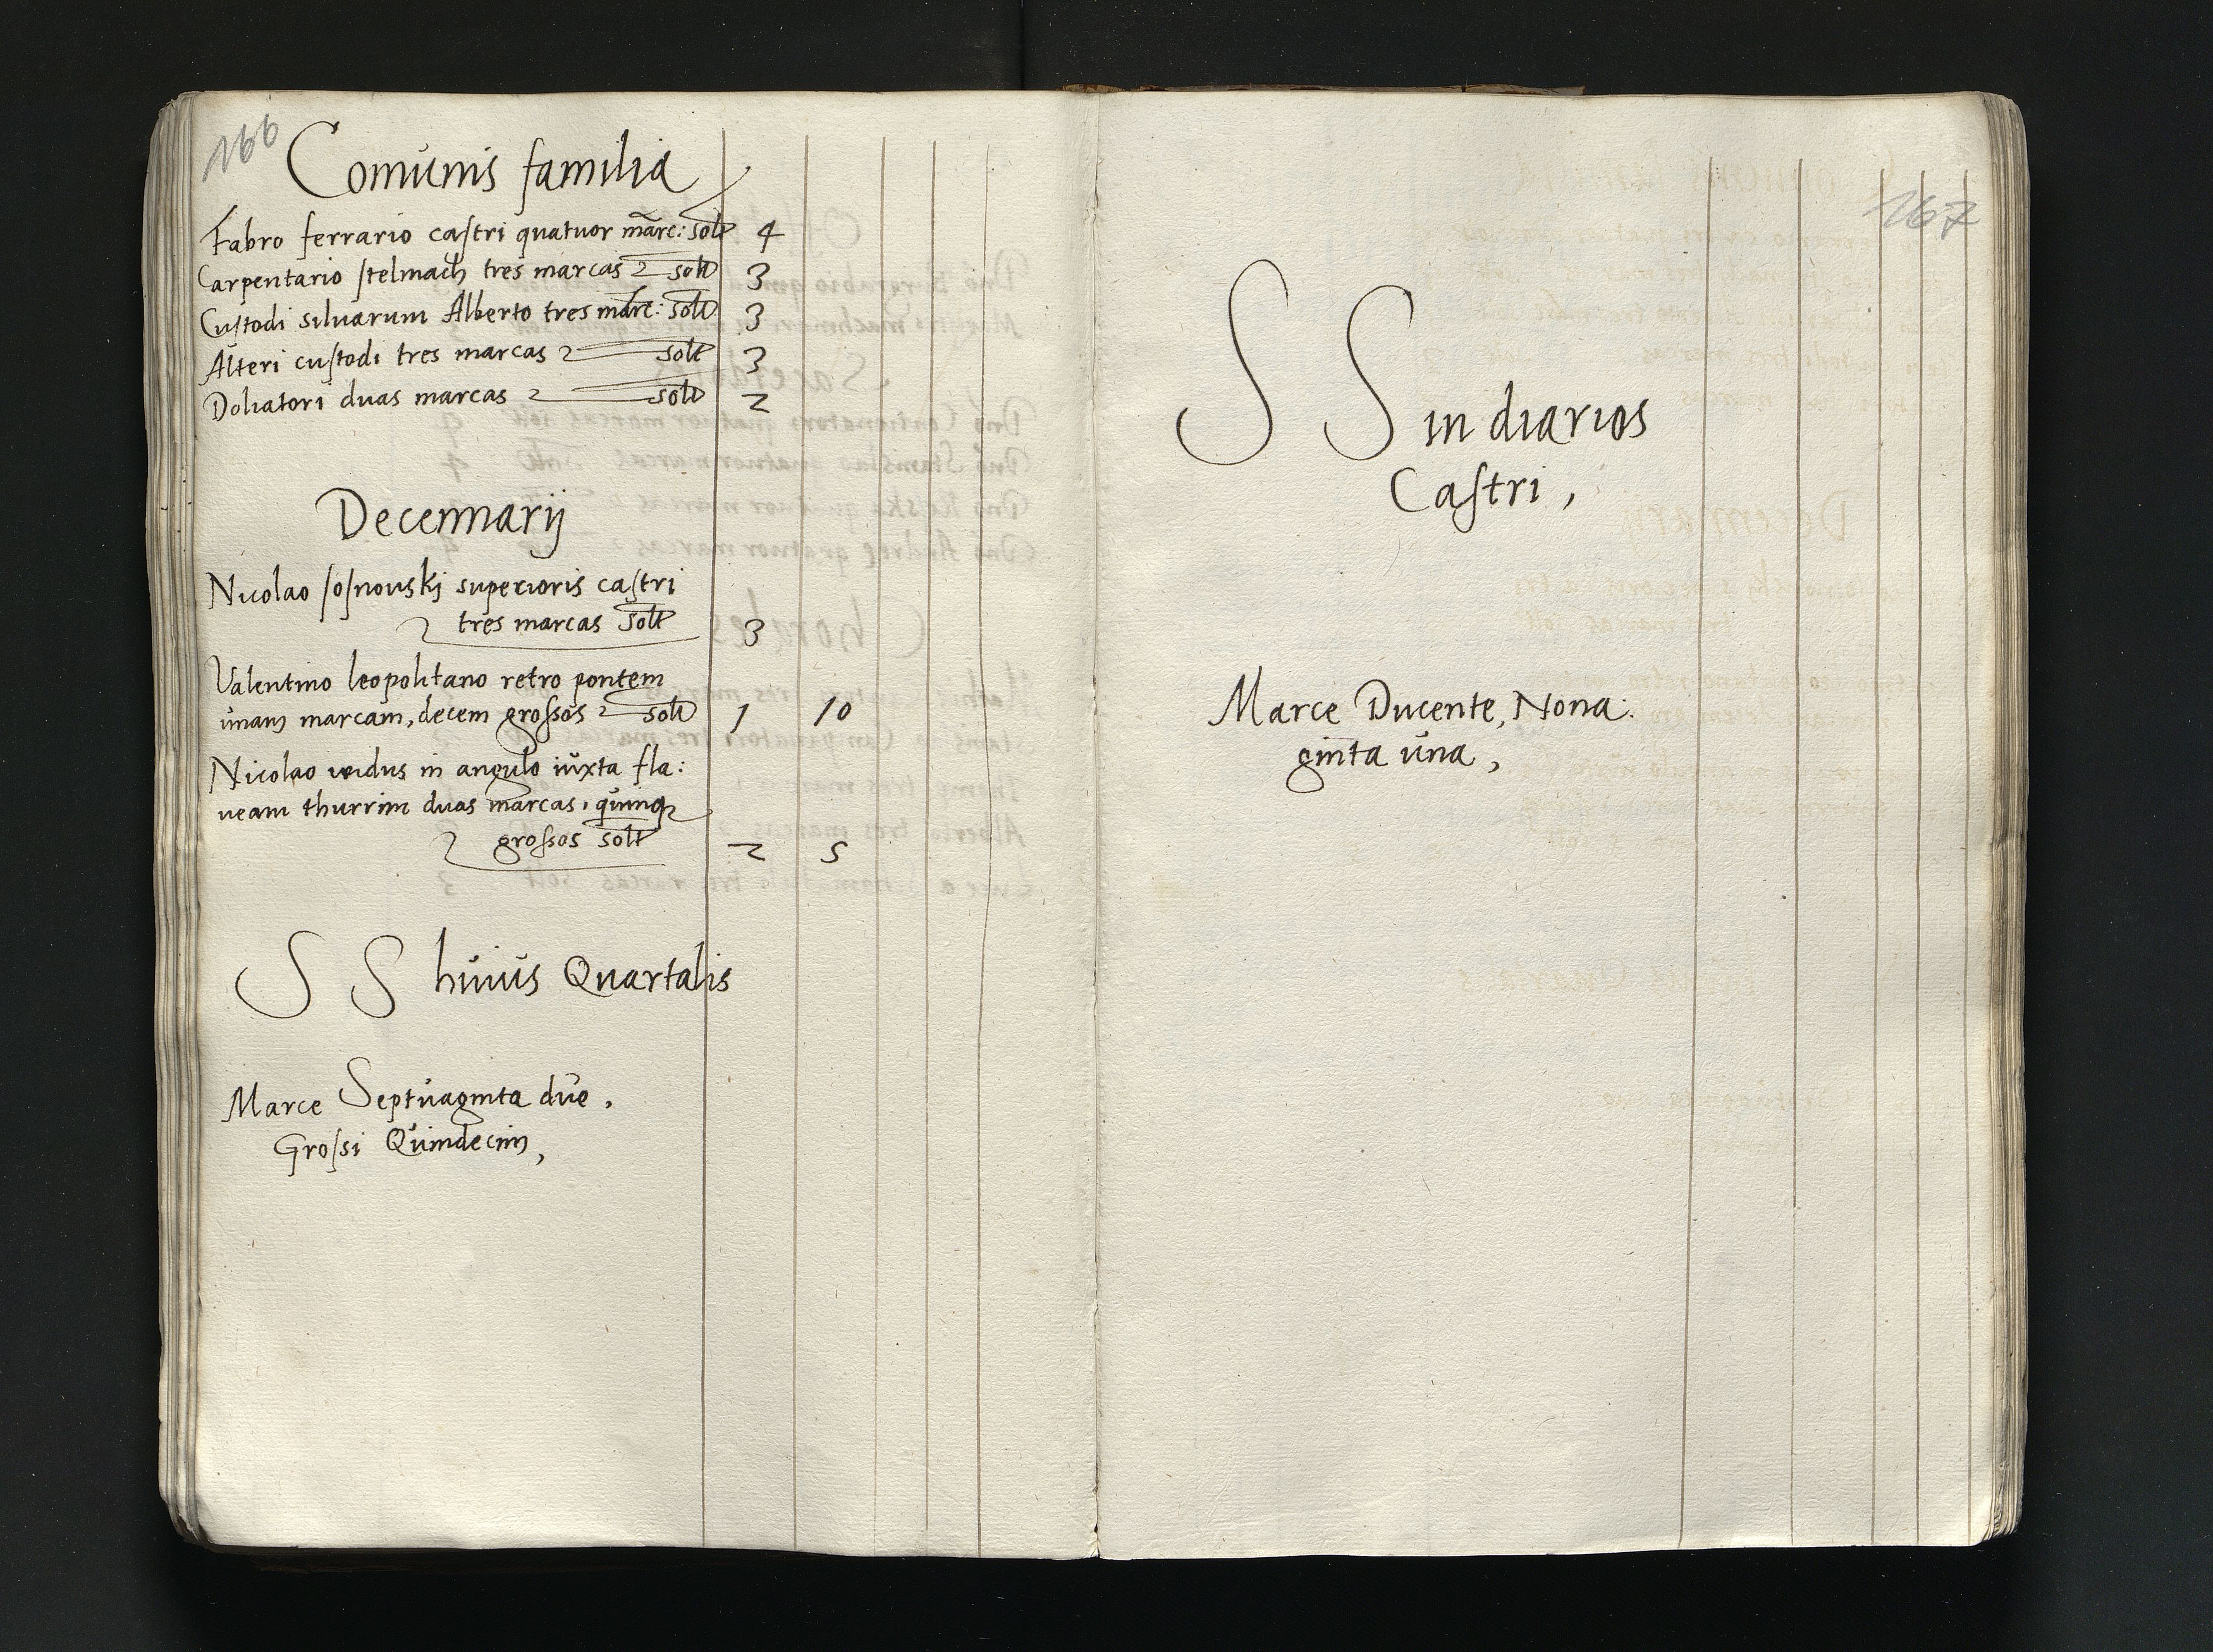 166
Comunis familia
Fabro ferrario castri quatuor marc: solt 4
Carpentario stelmach tres marcas solt 3
Custodi siluarum Alberto tres marc: solt 3
Alteri custodi tres marcas solt 3
Doliatori duas marcas solt 2
Decennarij
Nicolao sosnouskj superioris castri
tres marcas solt 3
Valentino leopolitano retro pontem
unam marcam, decem grossos solt 1 10
Nicolao in angulo iuxta fla:
ueam thurrim duas marcas, quinq
grossos solt 2 5
S S huius Quartalis
Marce Septuaginta due,
Grossi Quindecim,
167
S S in diarios
Castri,
Marce Ducente, Nona:
ginta una,